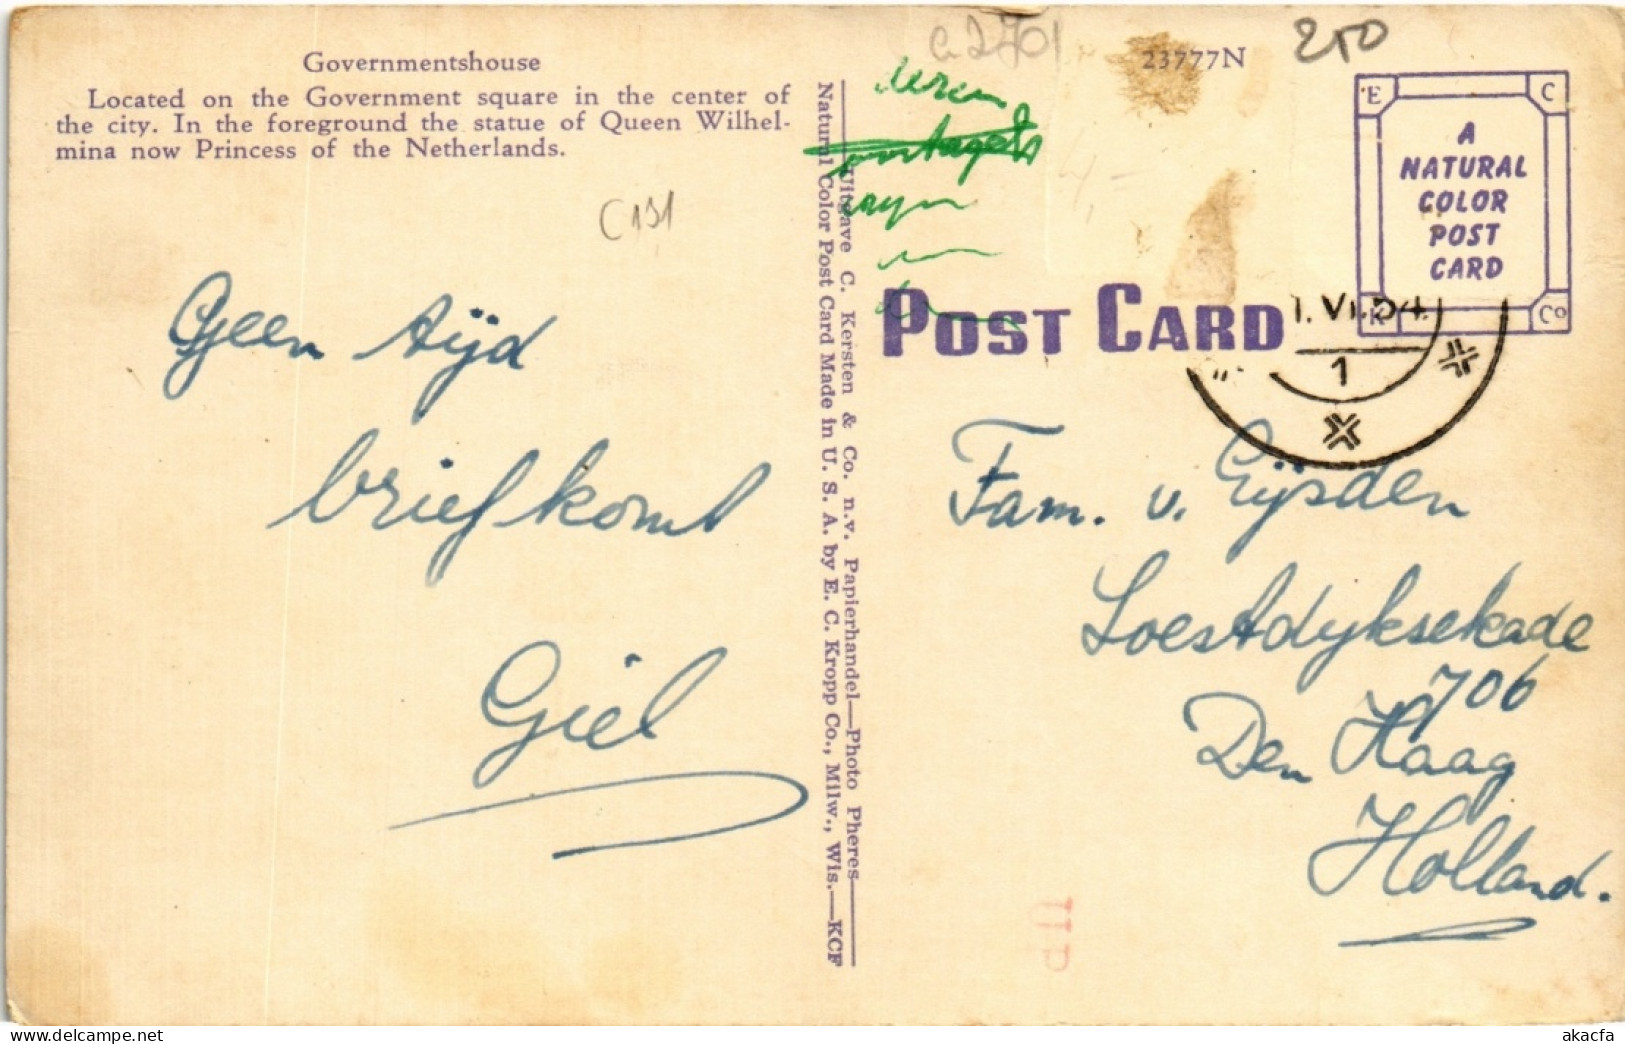 Governmentshouse
Located on the Government square in the center of
the city. In the foreground the statue of Queen Wilhel-
mina now Princess of the Netherlands.
C191
Geen tijd
brief komt
Giel
Uitgave C. Kersten & Co. n.v. Papierhandel—Photo Pheres
Natural Color Post Card Made in U. S. A. by E. C. Kropp Co., Milw., Wis.—KCF
23777N
250
E C
A
NATURAL
COLOR
POST
CARD
K Co
POST CARD
1. VI. 54.
1
Fam. v. Gijsden
Soestdijksekade
706
Den Haag
Holland.
UP
akacfa